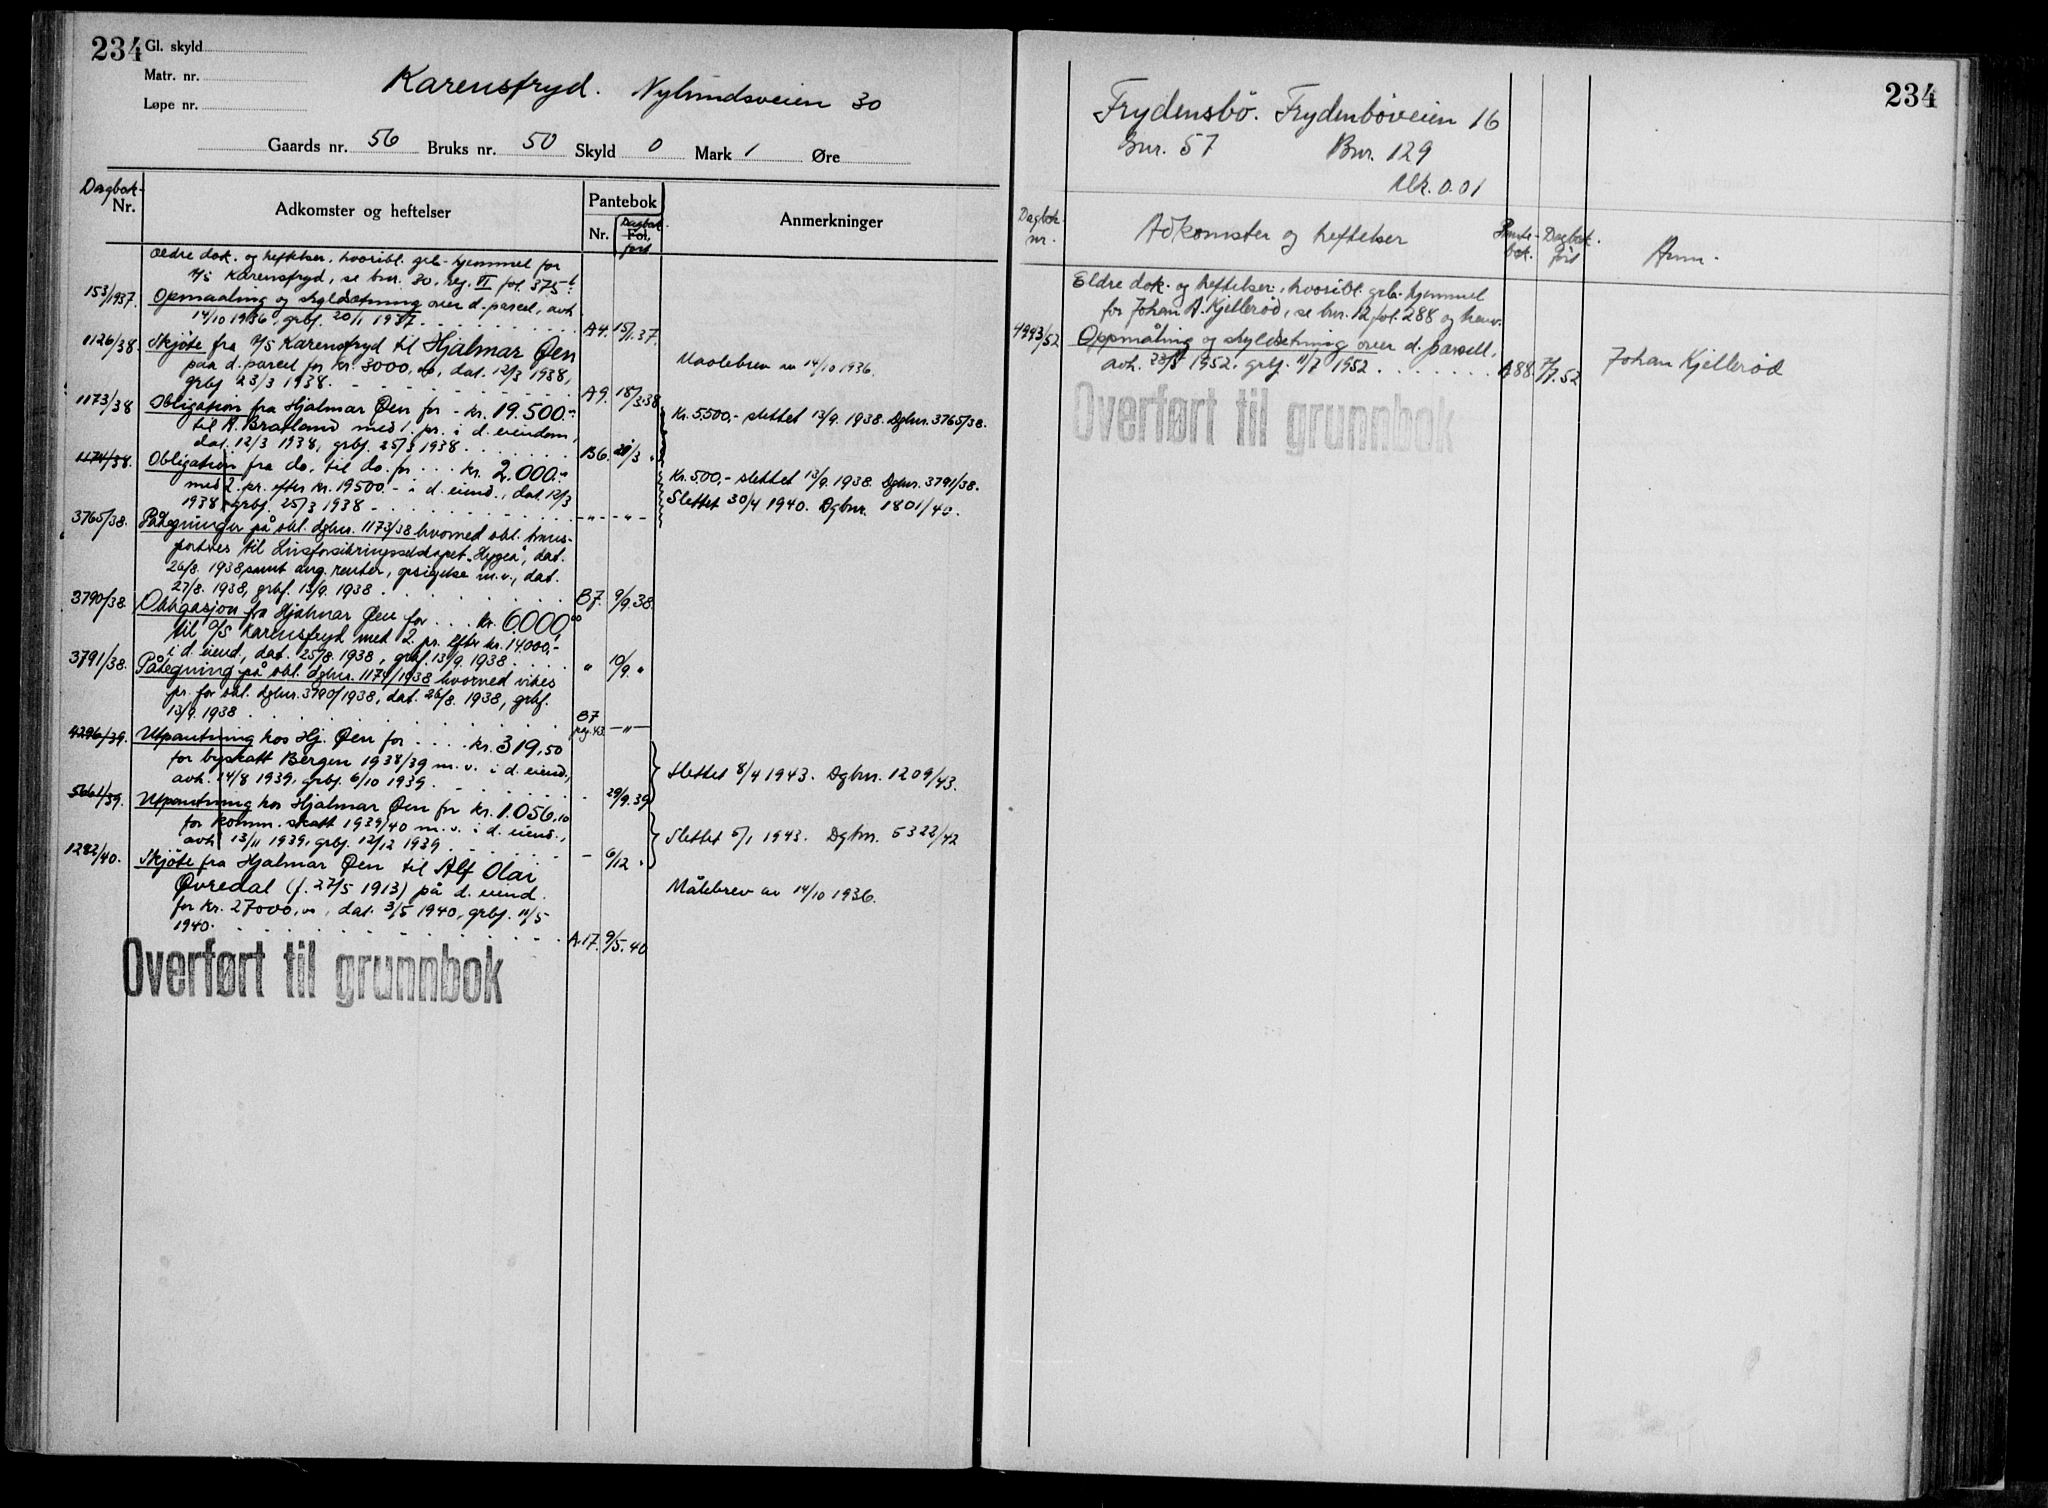 234
Gl. skyld
Matr. nr.
Løpe nr.
Karensfryd. Nylundsveien 30
Gaards nr. 56 Bruks nr. 50 Skyld 0 Mark 1 Øre
Dagbok- Nr.
Adkomster og heftelser
Pantebok
Nr. Fol. Dagbok ført
Anmerkninger
Ældre dok. og heftelser, hvoribl. grb. hjemmel for
A/S Karensfryd, se bnr. 30, reg. VI fol. 375b.
153/1937. Opmaaling og skyldsetning over d. parcel, avh.
14/10 1936, grbf. 20/1 1937. A4. 15/1.37.
1126/38. Skjøte fra A/S Karensfryd til Hjalmar Øen
paa d. parcel for kr. 3000,00, dat. 12/3 1938, Maalebrev av 14/10 1936.
grbf 23/3 1938. A9. 18/3.38
1173/38 Obligation fra Hjalmar Øen for - kr. 19.500.- Kr. 5.500,- slettet 13/9. 1938. Dgbnr. 3765/38.
til A. Bratland med 1. pr. i d. eiendom,
dat. 12/3 1938, grbf. 25/3 1938 B6. 21/3 "
1174/38. Obligation fra do. til do. for kr. 2.000.- Kr. 500,- slettet 13/9. 1938. Dgbnr. 3791/38.
med 2. pr. efter kr. 19500.- i d. eiend., dat. 12/3 Slettet 30/4 1940. Dgbnr. 1801/40.
1938, grbf. 25/3 1938 - " - - " -
3765/38. Påtegninger på obl. dgbnr. 1173/38 hvorved obl. trans-
porteres til Livsforsikringsselskapet "Hygea", dat.
26/8. 1938, samt ang. renter, opsigelse m.v., dat.
27/8. 1938, grbf. 13/9. 1938 B7. 9/9.38.
3790/38. Obligasjon fra Hjalmar Øen for kr. 6000,00
til A/S Karensfryd med 2. pr. efter kr. 14000,-
i d. eiend., dat. 25/8. 1938, grbf. 13/9. 1938 " 10/9. "
3791/38. Påtegning på obl. dgbnr. 1174/1938 hvorved vikes
pr. for obl. dgbnr. 3790/1938, dat. 26/8. 1938, grbf.
13/9. 1938 B7 pag. 43. - " -
4296/39. Utpantning hos Hj. Øen for kr. 319,50
for byskatt Bergen 1938/39 m.v. i d. eiend., Slettet 8/4 1943. Dgbnr. 1209/43.
avh. 14/8 1939, grbf. 6/10 1939. - 29/9.39
5661/39. Utpantning hos Hjalmar Øen for kr. 1.056,10
for komm. skatt 1939/40 m.v. i d. eiend., Slettet 5/1 1943. Dgbnr. 5322/42
avh. 13/11 1939, grbf. 12/12 1939 - 6/12 "
1282/40. Skjøte fra Hjalmar Øen til Alf Olai
Øvredal (f. 27/5 1913) på d. eiend. Målebrev av 14/10 1936.
for kr. 27000,00, dat. 3/5 1940, grbf. 11/5
1940. A.17. 9/5.40
Overført til grunnbok
234
Frydensbö. Frydenböveien 16
Gnr. 57 Bnr. 129
Mk. 0.01
Dagbok nr. Adkomster og heftelser Pante-bok. Dagbok ført Anm.
Eldre dok. og heftelser, hvoribl. grb. hjemmel
for Johan A. Kjellerød, se bnr. 12 fol. 288 og henv.
4993/52 Oppmåling og skyldsetning over d. parsell,
avh. 23/5 1952, grbf. 11/7 1952 A88. 7/7.52 Johan Kjellerød
Overført til grunnbok